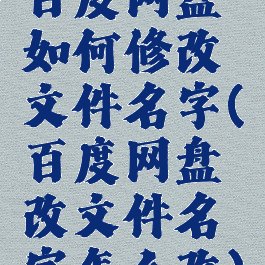 百度网盘
如何修改
文件名字(
百度网盘
改文件名
字怎么改)